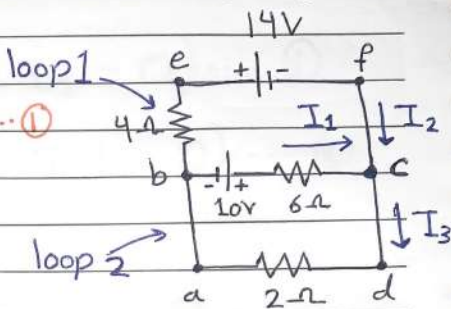 14V
loop1
e
+
-
f
..①
4Ω
I₁
I₂
b
-
+
c
10V
6Ω
I₃
loop 2
a
2Ω
d